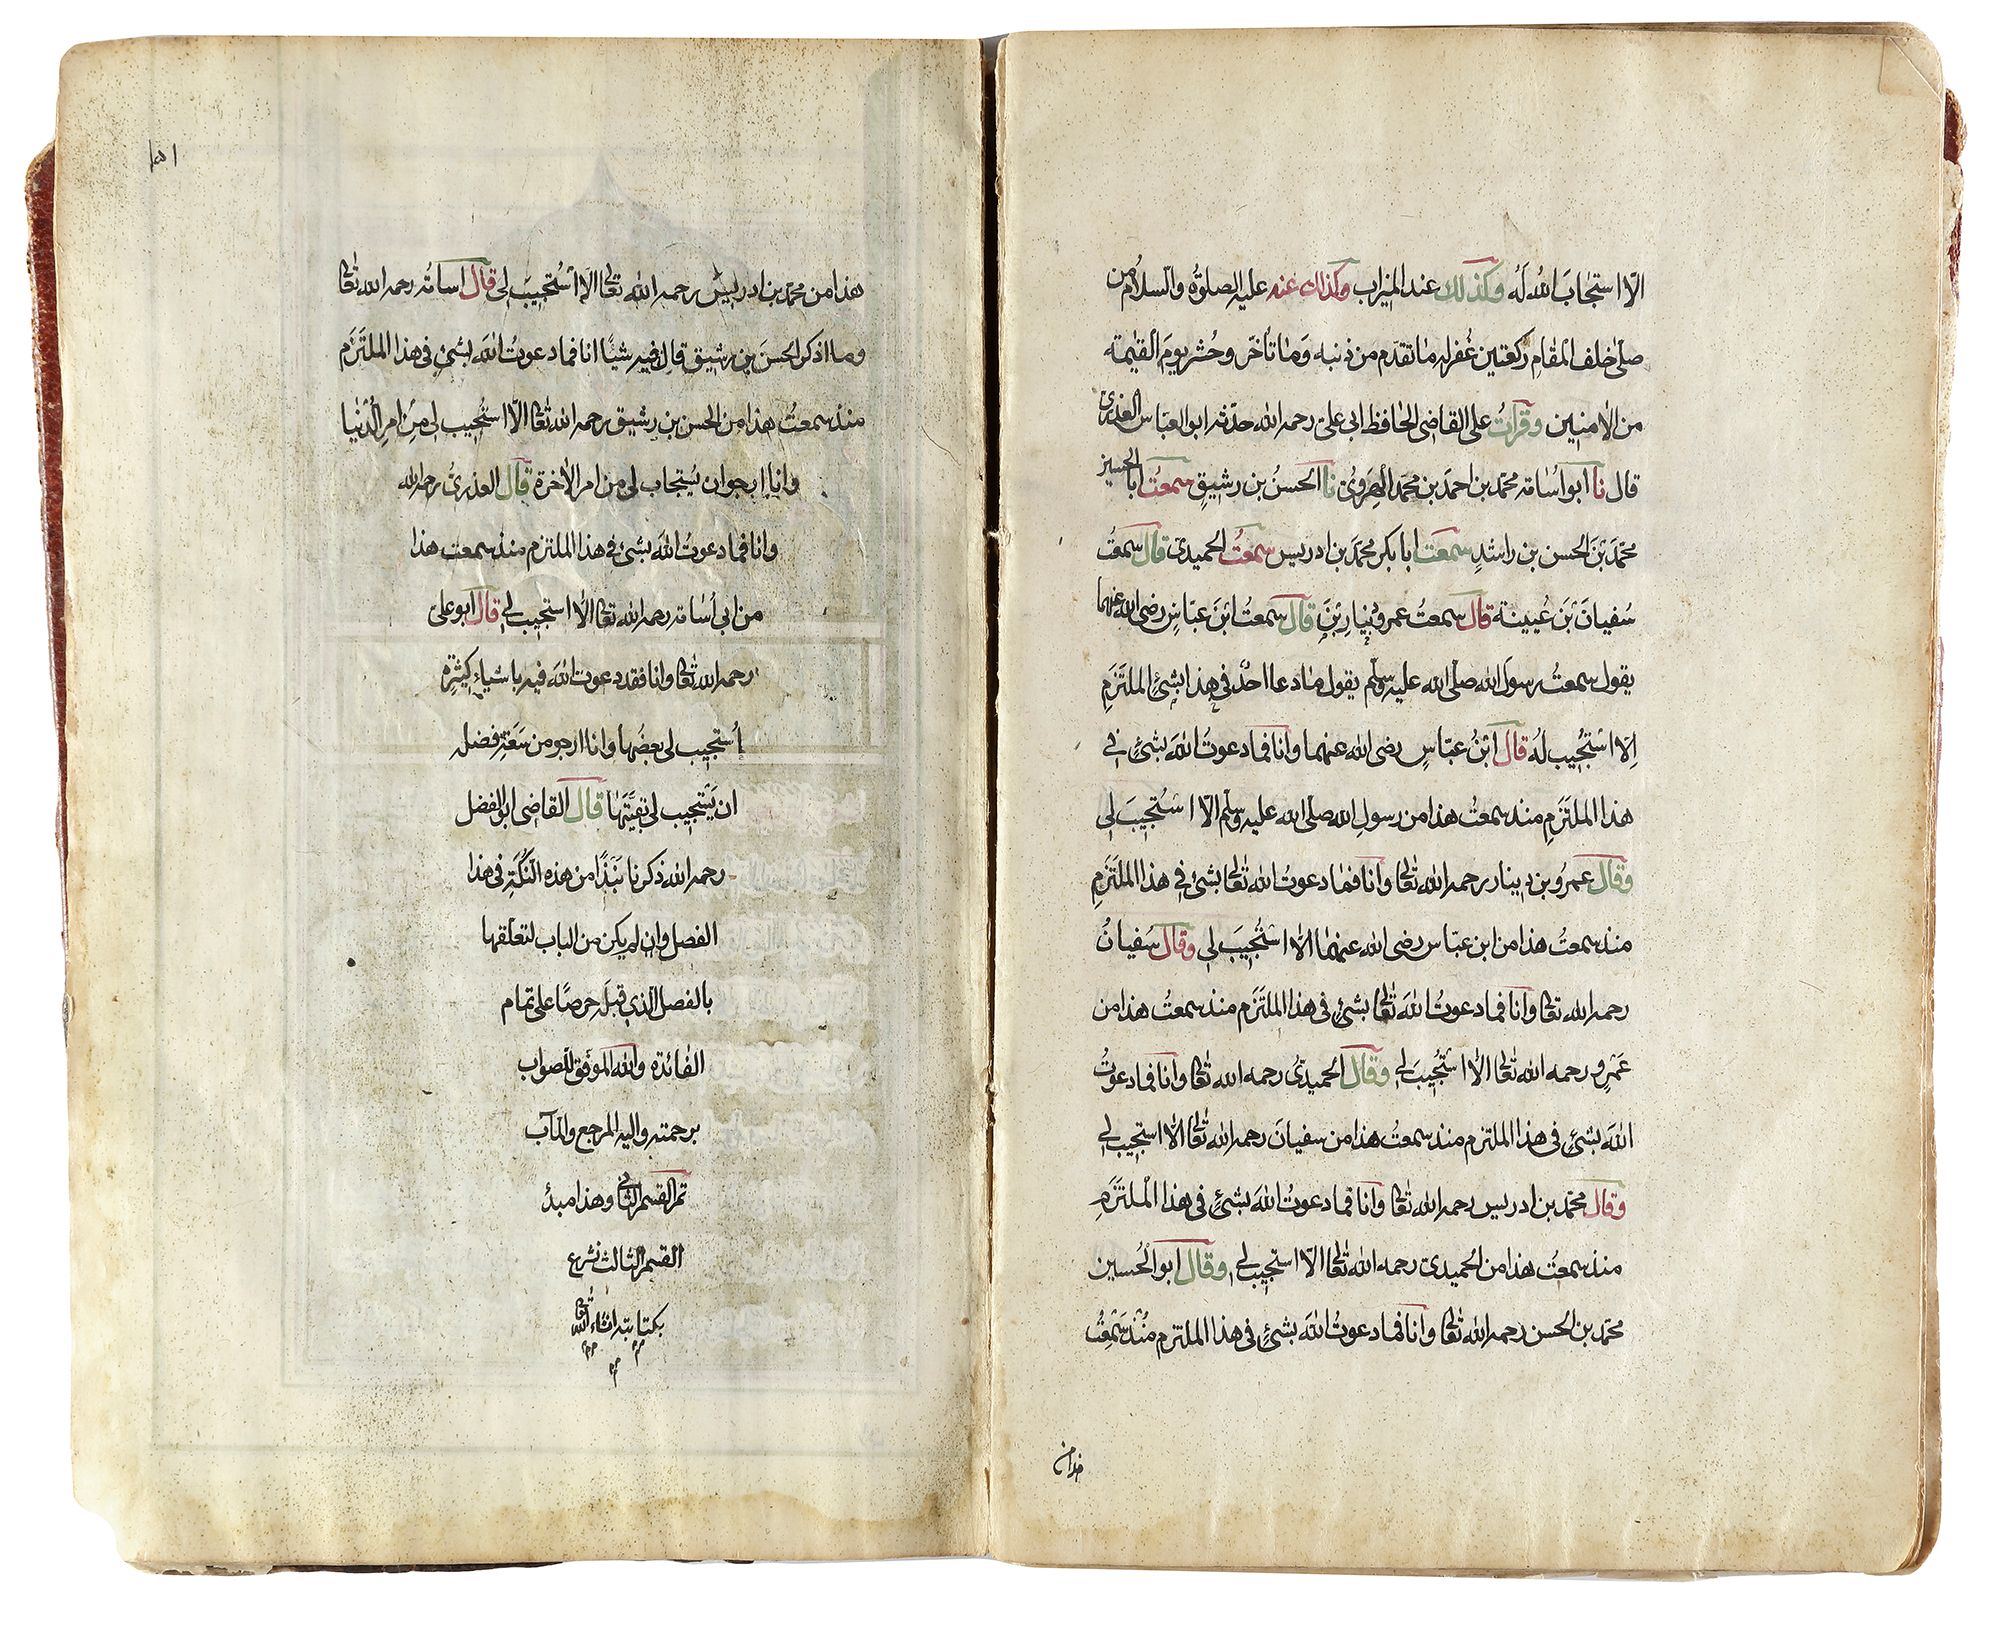 الّا استجابَ اللهُ لَه وكذلك عند الميزاب وكذلك عنه عليه الصلوة والسلام من
صلّى خلف المقامِ ركعتين غُفر له ما تقدّم من ذنبه وَما تأخّر وحُشر يومَ القيٰمة
من الاٰمنين وقرأتُ على القاضى الحافظ ابى علىّ رحمه الله حدّثه ابو العبّاس العذرىّ
قال نا ابو اسٰامة محمّد بن احمد بن محمد الهروىّ نا الحسنُ بن رشيقٍ سمعتُ ابا الحسين
محمّدَ بْنَ الحسن بن راشدٍ سمعت ابا بكر محمّد بن ادريس سمعتُ الحميدىّ قال سمعتُ
سُفيانَ بْنَ عُيينة قال سمعتُ عمرو بن دينار قال سمعتُ ابنَ عبّاسٍ رضى الله عنهما
يقول سمعتُ رسولَ الله صلّى الله عليه وسلّم يقول مٰا دعا احدٌ فى هذا بشئٍ الملتَزَمِ
اِلّا استُجيب لَه قال ابْنُ عبّاسٍ رضى الله عنهما وانا فما دعوتُ اللهَ بشئٍ فى
هذا الملتَزَمِ منذ سمعتُ هذا من رسولِ الله صلّى الله عليه وسلّم الّا استُجيبَ لى
وقال عمرو بن دينار رحمه الله تعالى وانا فمٰا دعوتُ اللهَ تعالى بشئٍ فى هذا الملتَزمِ
منذ سمعتُ هذا من ابن عبّاس رضى الله عنهما الّا استُجيبَ لى وقال سُفيانُ
رحمه الله تعالى وانا فما دعوتُ اللهَ تعالى بشئٍ فى هذا الملتَزَم منذ سمعتُ هذا من
عَمْرٍو رحمه الله تعالى الّا استُجيبَ لى وقال الحميدىّ رحمه الله تعالى وانا فما دعوتُ
اللهَ بشئٍ فى هذا الملتزم منذ سمعتُ هذا من سفيانَ رحمه الله تعالى الّا استجيب لى
وقال محمّد بن ادريس رحمه الله تعالى وانا فما دعوتُ اللهَ بشئٍ فى هذا الملتَزَمِ
منذ سمعتُ هذا من الحميدىّ رحمه الله تعالى الّا استجيب لى وقال ابو الحُسين
محمّد بن الحسن رحمه الله تعالى وانا فما دعوتُ اللهَ بشئٍ فى هذا الملتزم مُنْذ سَمِعْتُ
هذا من
هذا من محمّد بن ادريس رحمه الله تعالى الّا اسْتُجيبَ لى قال اسامة رحمه الله تعالى
وما اذكر الحسنَ بن رشيق قال فيه شيئًا انا فما دعوتُ اللهَ بشئٍ فى هذا الملتَزَم
منذ سمعتُ هذا من الحسن بن رشيق رحمه الله تعالى الّا استُجيب لى مِن امر الدُّنْيا
وانا ارجو ان يُستجاب لى من امر الاٰخرة قال العذرىُّ رحمه الله
وانا فما دعوتُ اللهَ بشئٍ فى هذا الملتزم منذ سمعت هذا
من ابى اُسٰامة رحمه الله تعالى الّا استجيب لى قال ابو على
رحمه الله تعالى وانا فقد دعوت اللهَ فيه باشيٰاءٍ كثيرةٍ
اُستجيب لى بعضُها وانا ارجو من سَعَةِ فضله
ان يَستجيب لى بقيَّتَهٰا قال القاضى ابو الفضل
رحمه الله ذكرنا نُبَذًا من هذه النّكتةِ فى هذا
الفصل وان لم يكن من الباب لتعلّقها
بالفصل الّذى قبله حرصًا على تمام
الفائدة والله الموفّق للصواب
برحمته واليه المرجع والمآب
تم القسم الثانى وهذا مبدءُ
القسم الثالث نشرع
بكتابته ان شاء الله تعالى